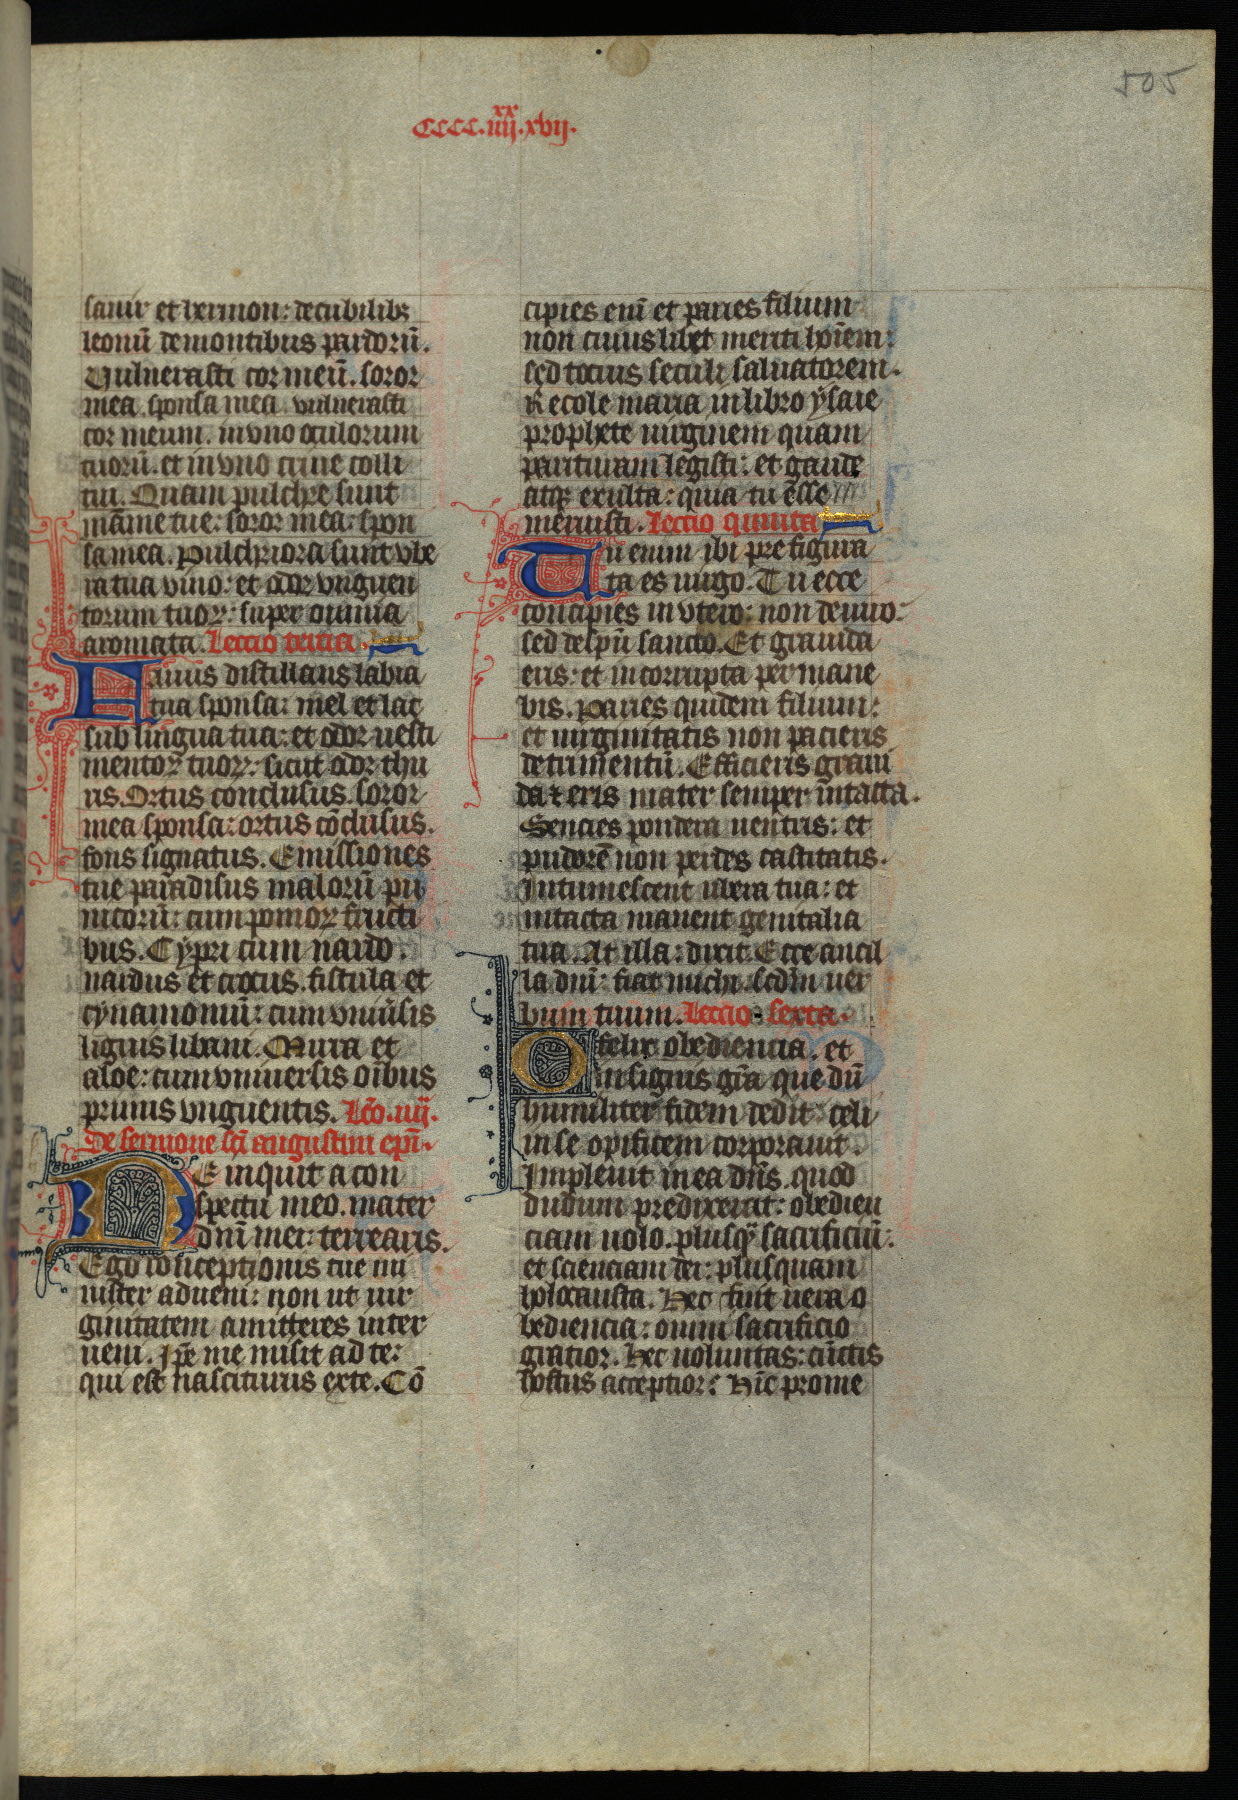 505
CCCC.iiij.xx xvij.
sanir et hermon: de cubilibꝫ
leonū de montibus pardorū.
Vulnerasti cor meū. soror
mea sponsa mea vulnerasti
cor meum. in vno oculorum
tuorū. et in vno crine colli
tui. Quam pulchre sunt
māme tue: soror mea. spon
sa mea. Pulchriora sunt vbe
ra tua vino: et odor vnguen
torum tuoꝝ: super omnia
aromata. Leccio tercia.
Fauus distillans labia
tua sponsa: mel et lac
sub lingua tua: et odor uesti
mentoꝝ tuoꝝ: sicut odor thu
ris. Ortus conclusus. soror
mea sponsa: ortus cōclusus.
fons signatus. Emissiones
tue paradisus malorū pu
nicorū: cum pomoꝝ fructi
bus. Cypri cum nardo.
nardus et crocus. fistula et
cynamomū: cum vniūsis
lignis libani. Mirra et
aloe: cum vniuersis oībus
primis vnguentis. Lcō. iiij.
De sermone sc̄i augustini ep̄i.
NE inquit a con
spectu meo. mater
dn̄i mei: terrearis.
Ego cōsceptionis tue mi
nister adueni: non ut uir
ginitatem amitteres inter
ueni. Ip̄e me misit ad te:
qui est nasciturus ex te. Cō
cipies enī et paries filium
non cuius libet meriti hoīem:
sed tocius seculi saluatorem.
Recole maria in libro ysaie
prophete uirginem quam
parituram legisti: et gaude
atqꝫ exulta: quia tu ēsse
meruisti. Leccio quinta
Tu enim ibi prefigura
ta es uirgo. Tu ecce
concipies in vtero: non de uiro:
sed de sp̄u sancto. Et grauida
eris: et incorrupta permane
bis. Paries quidem filium:
et uirginitatis non pacieris
detrimentū. Efficieris graui
da ⁊ eris mater semper intacta.
Sencies pondera uentris: et
pudorē non perdes castitatis.
Intumescent ubera tua: et
intacta manent genitalia
tua. At illa: dixit. Ecce ancil
la dn̄i: fiat michi. scd̄m uer
bum tuum. Leccio sexta.
O felix obediencia. et
insignis gr̄a que dū
humiliter fidem dedit: celi
in se opificem corporauit.
Impleuit in ea dn̄s. quod
dudum predixerat: obedien
ciam uolo. plusqͣ sacrificiū:
et scienciam dei: plusquam
holocausta. Hec fuit uera o
bediencia: omni sacrificio
gratior. Hec uoluntas: cūctis
hostiis acceptior: Hīc prome